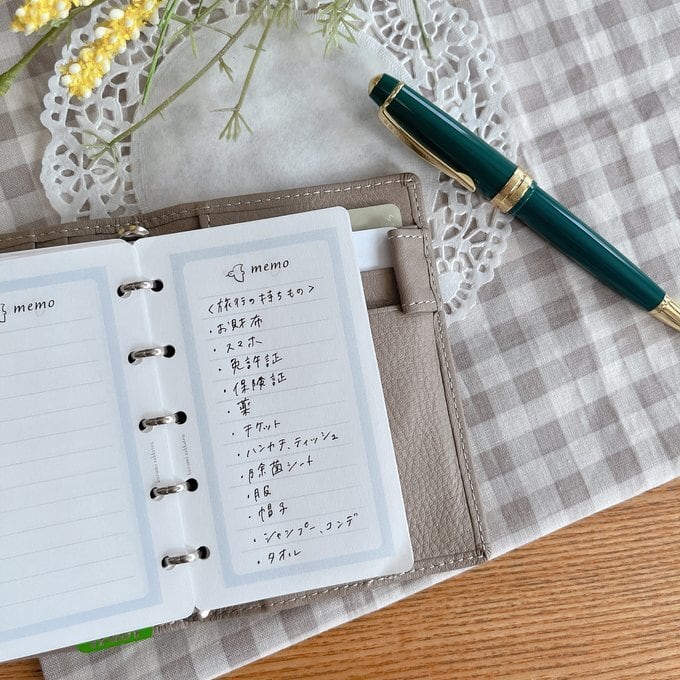 memo
memo
<旅行の持ちもの>
・お財布
・スマホ
・免許証
・保険証
・薬
・チケット
・ハンカチ、ティッシュ
・除菌シート
・服
・帽子
・シャンプー、コンデ
・タオル